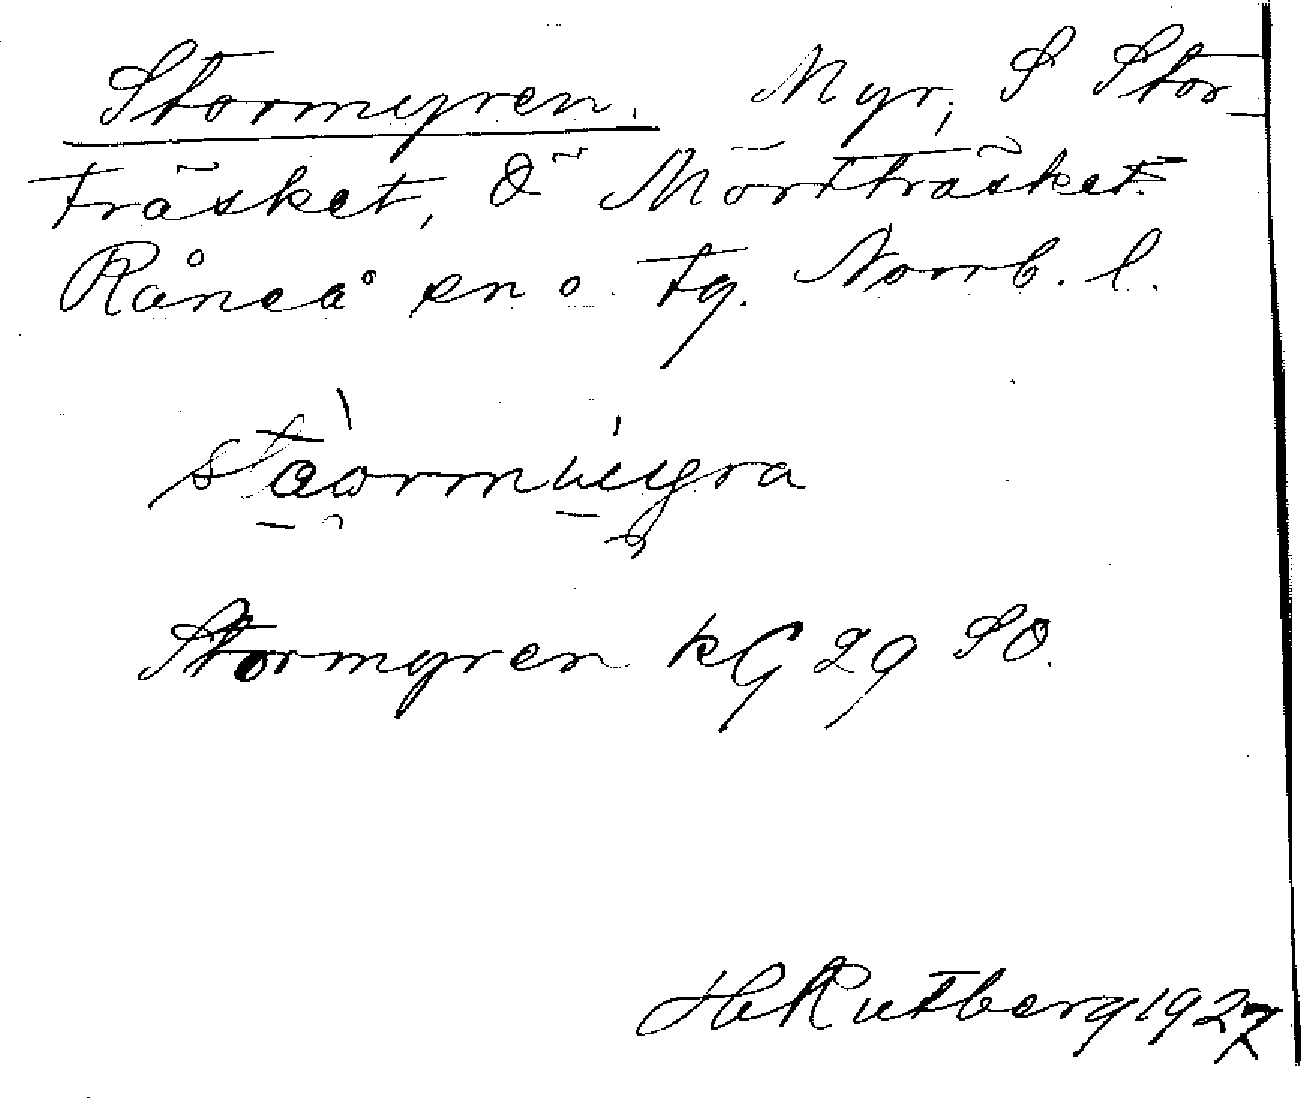 Stormyren. Myr, S Stor-
träsket, Ö Mörtträsket.
Råneå sn o. tg. Norrb. l.
Stormyren kG 29 SO.
H Rutberg 1927